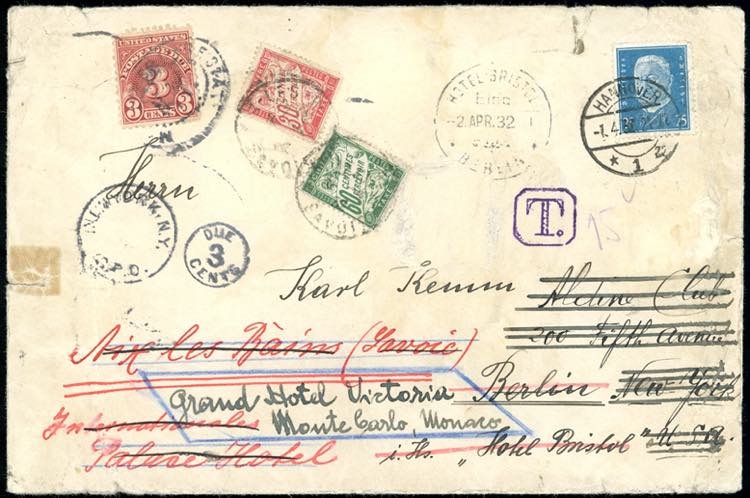 UNITED STATES
POSTAGE DUE
3
3 CENTS 3
30
60
CENTIMES
À PERCEVOIR
SAVOIE
HOTEL BRISTOL
-2.APR.32
BERLIN
HANNOVER
-1.4.32
* 1
25
T.
15
Herrn
NEW YORK, N.Y.
G.P.O.
DUE
3
CENTS
Karl Kemm
Aldine Club
200 Fifth Avenue
Aix les Bains (Savoie)
Berlin
New York
Grand Hotel Victoria
Monte Carlo, Monaco
Internationales
Palace Hotel
i. Hs. "Hotel Bristol"
U.S.A.